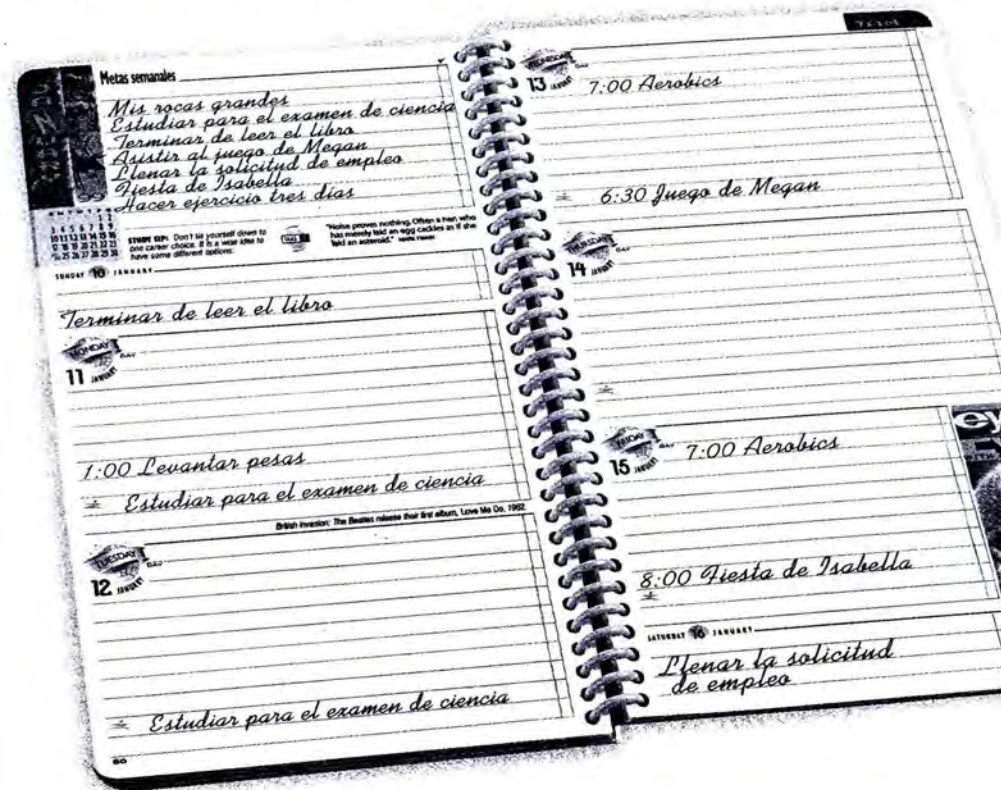 Metas semanales
Mis rocas grandes
Estudiar para el examen de ciencia
Terminar de leer el libro
Asistir al juego de Megan
Llenar la solicitud de empleo
Fiesta de Isabella
Hacer ejercicio tres días
S M T W T F S
1 2
3 4 5 6 7 8 9
10 11 12 13 14 15 16
17 18 19 20 21 22 23
25 26 27 28 29 30
STUDY TIP: Don't tie yourself down to
one career choice. It is a wise idea to
have some different options.
"Noise proves nothing. Often a hen who
has merely laid an egg cackles as if she
laid an asteroid."
SUNDAY 10 JANUARY
Terminar de leer el libro
MONDAY
DAY
11 JANUARY
1:00 Levantar pesas
Estudiar para el examen de ciencia
British Invasion: The Beatles release their first album, Love Me Do, 1962.
TUESDAY
DAY
12 JANUARY
Estudiar para el examen de ciencia
60
WEDNESDAY
DAY
13 JANUARY
7:00 Aerobics
6:30 Juego de Megan
THURSDAY
DAY
14 JANUARY
FRIDAY
DAY
15 JANUARY
7:00 Aerobics
8:00 Fiesta de Isabella
SATURDAY 16 JANUARY
Llenar la solicitud
de empleo
ey